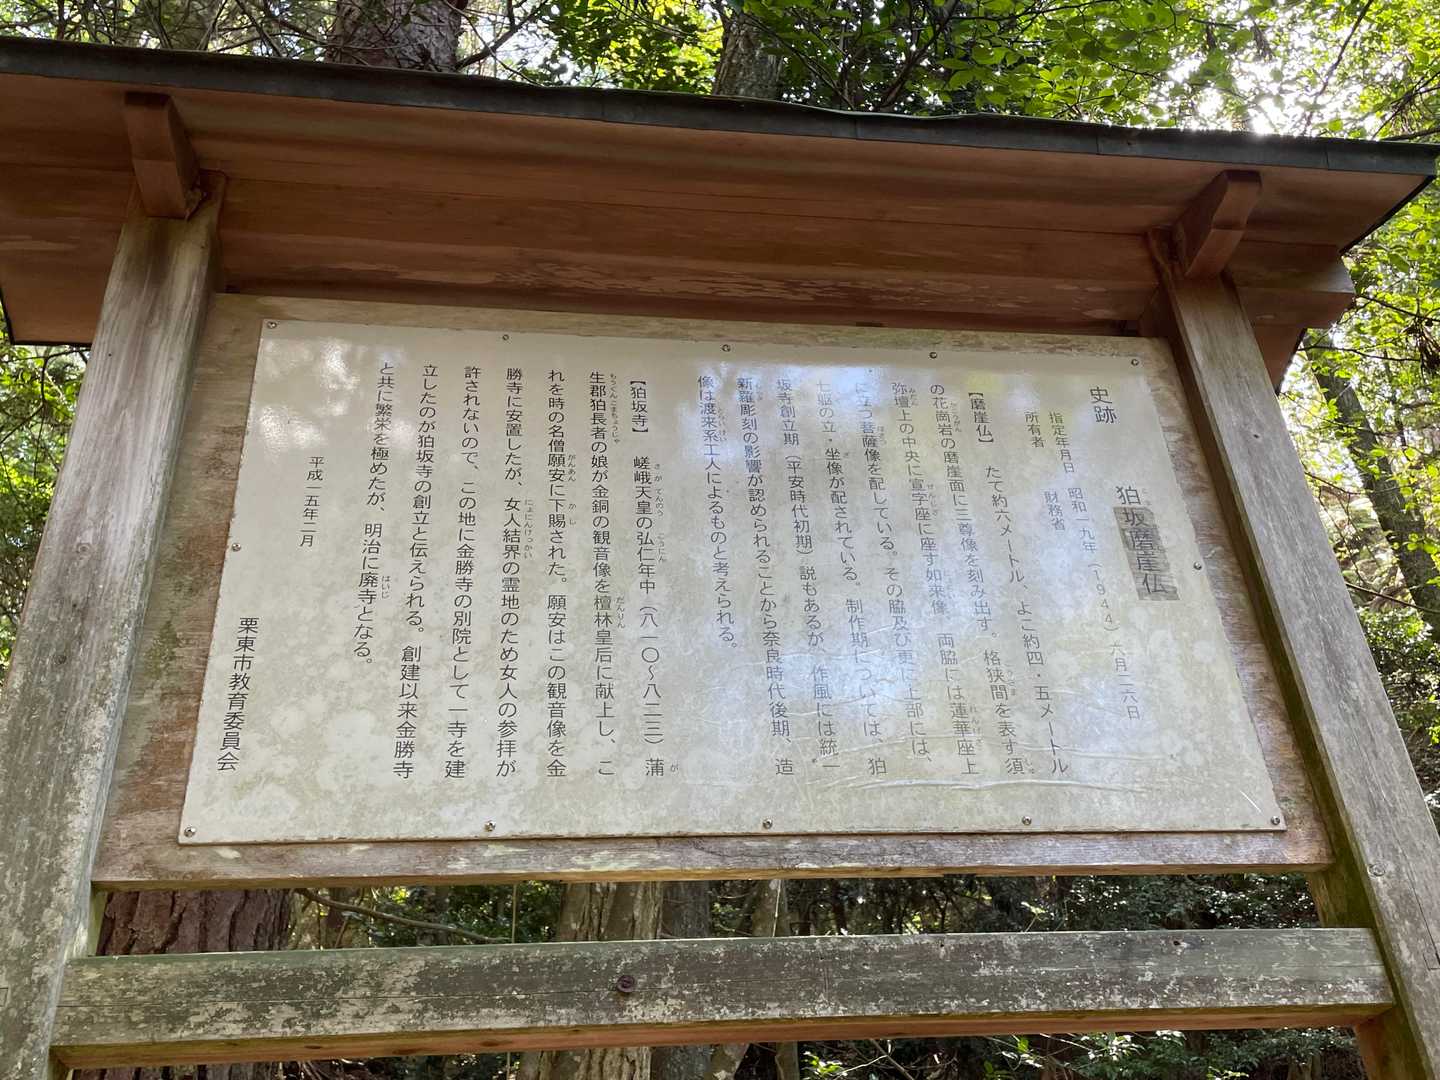 史跡　狛坂磨崖仏
指定年月日　昭和一九年（1944）六月二六日
所有者　財務省
【磨崖仏】　たて約六メートル、よこ約四・五メートル
の花崗岩の磨崖面に三尊像を刻み出す。格狭間を表す須
弥壇上の中央に宣字座に座す如来像、両脇には蓮華座上
に立つ菩薩像を配している。その脇及び更に上部には、
七躯の立・坐像が配されている。制作期については、狛
坂寺創立期（平安時代初期）説もあるが、作風には統一
新羅彫刻の影響が認められることから奈良時代後期、造
像は渡来系工人によるものと考えられる。
【狛坂寺】　嵯峨天皇の弘仁年中（八一〇〜八二三）蒲
生郡狛長者の娘が金銅の観音像を檀林皇后に献上し、こ
れを時の名僧願安に下賜された。願安はこの観音像を金
勝寺に安置したが、女人結界の霊地のため女人の参拝が
許されないので、この地に金勝寺の別院として一寺を建
立したのが狛坂寺の創立と伝えられる。創建以来金勝寺
と共に繁栄を極めたが、明治に廃寺となる。
平成一五年二月
栗東市教育委員会